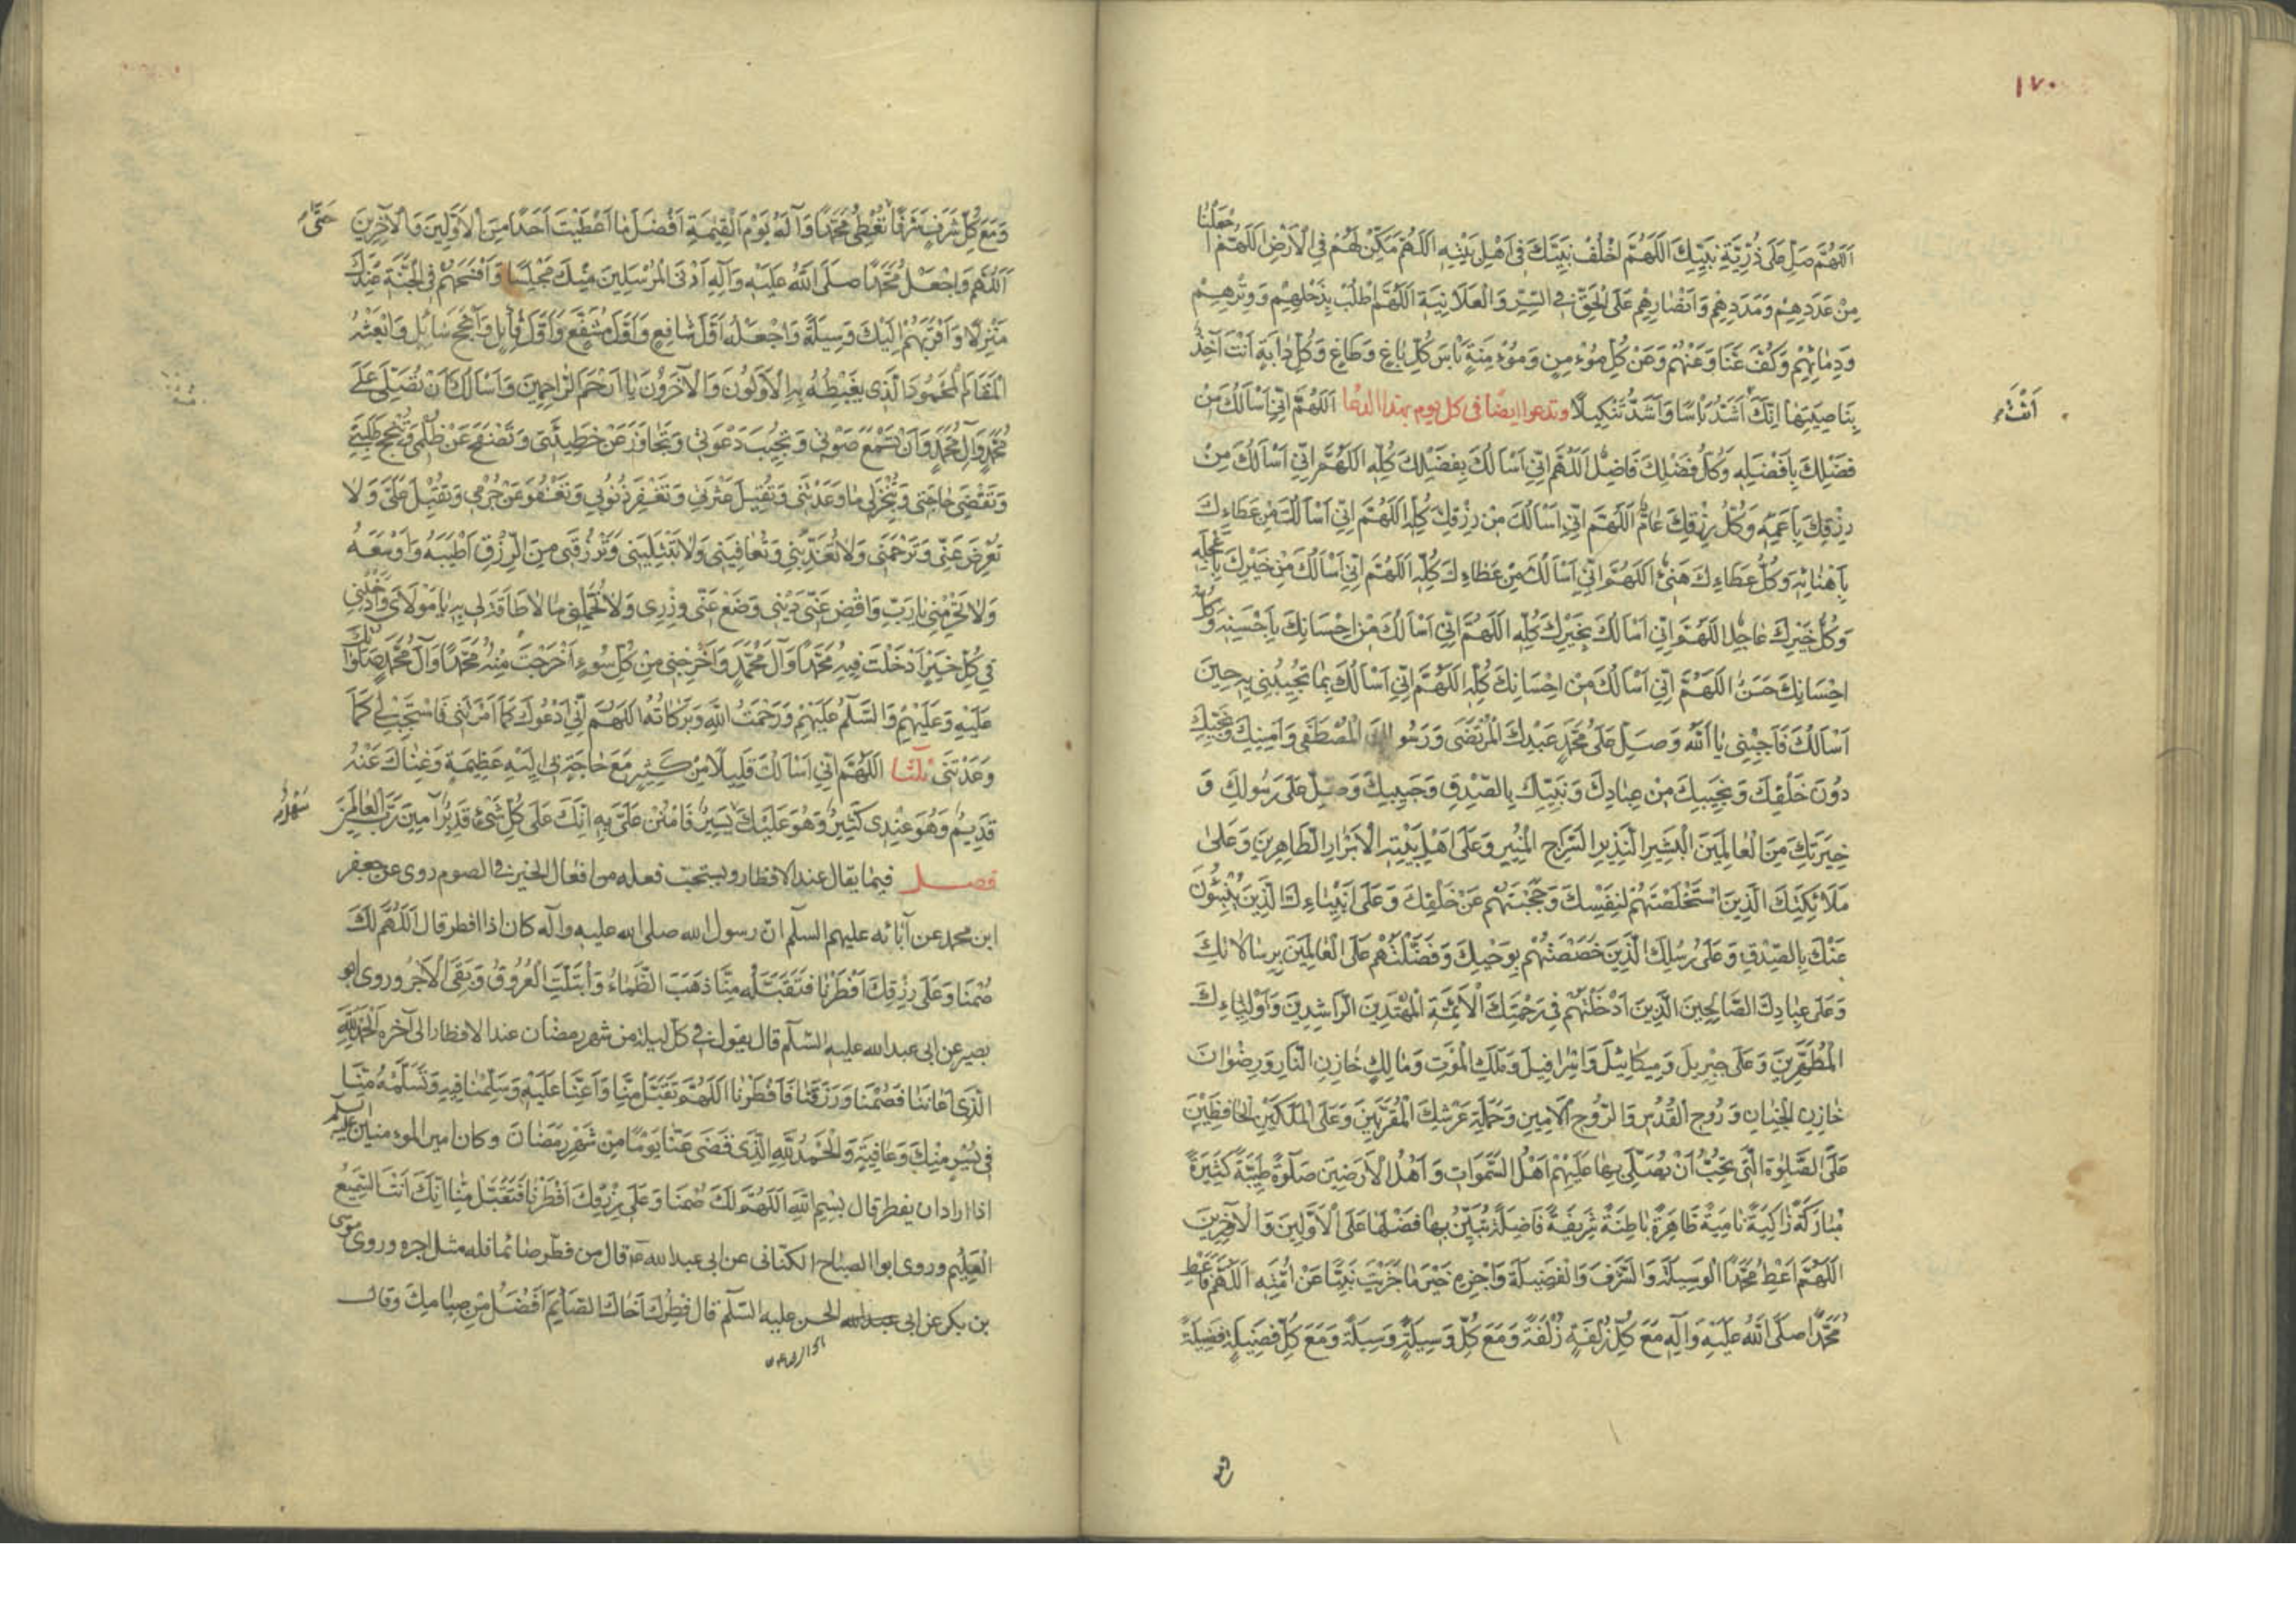 ١٧٠
اَللّٰهُمَّ صَلِّ عَلٰى ذُرِّيَّةِ نَبِيِّكَ اَللّٰهُمَّ اخْلُفْ نَبِيَّكَ فى اَهْلِ بَيْتِهِ اَللّٰهُمَّ مَكِّنْ لَهُمْ فِى الْاَرْضِ اَللّٰهُمَّ اجْعَلْنَا
مِنْ عَدَدِهِمْ وَمَدَدِهِمْ وَاَنْصَارِهِمْ عَلَى الْحَقِّ فِى السِّرِّ وَالْعَلَانِيَةِ اَللّٰهُمَّ اطْلُبْ بِذَحْلِهِمْ وَوِتْرِهِمْ
وَدِمَائِهِمْ وَكُفَّ عَنَّا وَعَنْهُمْ وَعَنْ كُلِّ مُؤْمِنٍ وَمُؤْمِنَةٍ بَاْسَ كُلِّ بَاغٍ وَطَاغٍ وَكُلِّ دَابَّةٍ اَنْتَ آخِذٌ
بِنَاصِيَتِهَا اِنَّكَ اَشَدُّ بَاْسًا وَاَشَدُّ تَنْكِيلًا وتدعوا ايضا فى كل يوم بهذا الدعا اَللّٰهُمَّ اِنِّى اَسْاَلُكَ مِنْ
اَنْتَ
فَضْلِكَ بِاَفْضَلِهِ وَكُلُّ فَضْلِكَ فَاضِلٌ اَللّٰهُمَّ اِنِّى اَسْاَلُكَ بِفَضْلِكَ كُلِّهِ اَللّٰهُمَّ اِنِّى اَسْاَلُكَ مِنْ
رِزْقِكَ بِاَعَمِّهِ وَكُلُّ رِزْقِكَ عَامٌّ اَللّٰهُمَّ اِنِّى اَسْاَلُكَ مِنْ رِزْقِكَ كُلِّهِ اَللّٰهُمَّ اِنِّى اَسْاَلُكَ مِنْ عَطَاءِكَ
بِاَهْنَائِهِ وَكُلُّ عَطَاءِكَ هَنِىءٌ اَللّٰهُمَّ اِنِّى اَسْاَلُكَ مِنْ عَطَاءِكَ كُلِّهِ اَللّٰهُمَّ اِنِّى اَسْاَلُكَ مِنْ خَيْرِكَ بِاَعْجَلِهِ
وَكُلُّ خَيْرِكَ عَاجِلٌ اَللّٰهُمَّ اِنِّى اَسْاَلُكَ بِخَيْرِكَ كُلِّهِ اَللّٰهُمَّ اِنِّى اَسْاَلُكَ مِنْ اِحْسَانِكَ بِاَحْسَنِهِ وَكُلُّ
اِحْسَانِكَ حَسَنٌ اَللّٰهُمَّ اِنِّى اَسْاَلُكَ مِنْ اِحْسَانِكَ كُلِّهِ اَللّٰهُمَّ اِنِّى اَسْاَلُكَ بِمَا تُجِيبُنِى بِهِ حِينَ
اَسْاَلُكَ فَاَجِبْنِى يَا اَللّٰهُ وَصَلِّ عَلٰى مُحَمَّدٍ عَبْدِكَ الْمُرْتَضٰى وَرَسُولِكَ الْمُصْطَفٰى وَاَمِينِكَ وَنَجِيِّكَ
دُونَ خَلْقِكَ وَنَجِيبِكَ مِنْ عِبَادِكَ وَنَبِيِّكَ بِالصِّدْقِ وَحَبِيبِكَ وَصَلِّ عَلٰى رَسُولِكَ وَ
خِيَرَتِكَ مِنَ الْعَالَمِينَ الْبَشِيرِ النَّذِيرِ السِّرَاجِ الْمُنِيرِ وَعَلٰى اَهْلِ بَيْتِهِ الْاَبْرَارِ الطَّاهِرِينَ وَعَلٰى
مَلَائِكَتِكَ الَّذِينَ اسْتَخْلَصْتَهُمْ لِنَفْسِكَ وَحَجَبْتَهُمْ عَنْ خَلْقِكَ وَعَلٰى اَنْبِيَاءِكَ الَّذِينَ يُنْبِئُونَ
عَنْكَ بِالصِّدْقِ وَعَلٰى رُسُلِكَ الَّذِينَ خَصَصْتَهُمْ بِوَحْيِكَ وَفَضَّلْتَهُمْ عَلَى الْعَالَمِينَ بِرِسَالَاتِكَ
وَعَلٰى عِبَادِكَ الصَّالِحِينَ الَّذِينَ اَدْخَلْتَهُمْ فِى رَحْمَتِكَ الْاَئِمَّةِ الْمُهْتَدِينَ الرَّاشِدِينَ وَاَوْلِيَاءِكَ
الْمُطَهَّرِينَ وَعَلٰى جِبْرِيلَ وَمِيكَائِيلَ وَاِسْرَافِيلَ وَمَلَكِ الْمَوْتِ وَمَالِكٍ خَازِنِ النَّارِ وَرِضْوَانَ
خَازِنِ الْجِنَانِ وَرُوحِ الْقُدُسِ وَالرُّوحِ الْاَمِينِ وَحَمَلَةِ عَرْشِكَ الْمُقَرَّبِينَ وَعَلَى الْمَلَكَيْنِ الْحَافِظَيْنِ
عَلَىَّ الصَّلٰوةَ الَّتِى تُحِبُّ اَنْ يُصَلِّىَ بِهَا عَلَيْهِمْ اَهْلُ السَّمٰوَاتِ وَاَهْلُ الْاَرَضِينَ صَلٰوةً طَيِّبَةً كَثِيرَةً
مُبَارَكَةً زَاكِيَةً نَامِيَةً ظَاهِرَةً بَاطِنَةً شَرِيفَةً فَاضِلَةً تُبَيِّنُ بِهَا فَضْلَهَا عَلَى الْاَوَّلِينَ وَالْآخِرِينَ
اَللّٰهُمَّ اَعْطِ مُحَمَّدًا الْوَسِيلَةَ وَالشَّرَفَ وَالْفَضِيلَةَ وَاجْزِهِ خَيْرَ مَا جَزَيْتَ نَبِيًّا عَنْ اُمَّتِهِ اَللّٰهُمَّ فَاَعْطِ
مُحَمَّدًا صَلَّى اللّٰهُ عَلَيْهِ وَآلِهِ مَعَ كُلِّ زُلْفَةٍ زُلْفَةً وَمَعَ كُلِّ وَسِيلَةٍ وَسِيلَةً وَمَعَ كُلِّ فَضِيلَةٍ فَضِيلَةً
وَمَعَ كُلِّ شَرَفٍ شَرَفًا تُعْطِى مُحَمَّدًا وَآلَهُ يَوْمَ الْقِيٰمَةِ اَفْضَلَ مَا اَعْطَيْتَ اَحَدًا مِنَ الْاَوَّلِينَ وَالْآخِرِينَ
حَتّٰى
اَللّٰهُمَّ وَاجْعَلْ مُحَمَّدًا صَلَّى اللّٰهُ عَلَيْهِ وَآلِهِ اَدْنَى الْمُرْسَلِينَ مِنْكَ مَجْلِسًا وَاَفْسَحَهُمْ فِى الْجَنَّةِ عِنْدَكَ
مَنْزِلًا وَاَقْرَبَهُمْ اِلَيْكَ وَسِيلَةً وَاجْعَلْهُ اَوَّلَ شَافِعٍ وَاَوَّلَ مُشَفَّعٍ وَاَوَّلَ قَائِلٍ وَاَنْجَحَ سَائِلٍ وَابْعَثْهُ
الْمَقَامَ الْمَحْمُودَ الَّذِى يَغْبِطُهُ بِهِ الْاَوَّلُونَ وَالْآخِرُونَ يَا اَرْحَمَ الرَّاحِمِينَ وَاَسْاَلُكَ اَنْ تُصَلِّىَ عَلٰى
مُحَمَّدٍ وَآلِ مُحَمَّدٍ وَاَنْ تَسْمَعَ صَوْتِى وَتُجِيبَ دَعْوَتِى وَتَجَاوَزَ عَنْ خَطِيئَتِى وَتَصْفَحَ عَنْ ظُلْمِى وَتُنْجِحَ طَلِبَتِى
وَتَقْضِىَ حَاجَتِى وَتُنْجِزَ لِى مَا وَعَدْتَنِى وَتُقِيلَ عَثْرَتِى وَتَغْفِرَ ذُنُوبِى وَتَعْفُوَ عَنْ جُرْمِى وَتُقْبِلَ عَلَىَّ وَلَا
تُعْرِضَ عَنِّى وَتَرْحَمَنِى وَلَا تُعَذِّبَنِى وَتُعَافِيَنِى وَلَا تَبْتَلِيَنِى وَتَرْزُقَنِى مِنَ الرِّزْقِ اَطْيَبَهُ وَاَوْسَعَهُ
وَلَا تَحْرِمْنِى يَا رَبِّ وَاقْضِ عَنِّى دَيْنِى وَضَعْ عَنِّى وِزْرِى وَلَا تُحَمِّلْنِى مَا لَا طَاقَةَ لِى بِهِ يَا مَوْلَاىَ وَاَدْخِلْنِى
فِى كُلِّ خَيْرٍ اَدْخَلْتَ فِيهِ مُحَمَّدًا وَآلَ مُحَمَّدٍ وَاَخْرِجْنِى مِنْ كُلِّ سُوءٍ اَخْرَجْتَ مِنْهُ مُحَمَّدًا وَآلَ مُحَمَّدٍ صَلَوَاتُكَ
عَلَيْهِ وَعَلَيْهِمْ وَالسَّلٰمُ عَلَيْهِمْ وَرَحْمَتُ اللّٰهِ وَبَرَكَاتُهُ اَللّٰهُمَّ اِنِّى اَدْعُوكَ كَمَا اَمَرْتَنِى فَاسْتَجِبْ لِى كَمَا
وَعَدْتَنِى ثلثا اَللّٰهُمَّ اِنِّى اَسْاَلُكَ قَلِيلًا مِنْ كَثِيرٍ مَعَ حَاجَةٍ بِى اِلَيْهِ عَظِيمَةٍ وَغِنَاكَ عَنْهُ
قَدِيمٌ وَهُوَ عِنْدِى كَثِيرٌ وَهُوَ عَلَيْكَ يَسِيرٌ فَامْنُنْ عَلَىَّ بِهِ اِنَّكَ عَلٰى كُلِّ شَىْءٍ قَدِيرٌ آمِينَ رَبَّ الْعَالَمِينَ
سَهْلٌ
فصل فيما يقال عند الافطار ويستحب فعله من افعال الخير فى الصوم روى عن جعفر
ابن محمد عن آبائه عليهم السلم ان رسول الله صلى الله عليه واله كان اذا افطر قال اَللّٰهُمَّ لَكَ
صُمْنَا وَعَلٰى رِزْقِكَ اَفْطَرْنَا فَتَقَبَّلْهُ مِنَّا ذَهَبَ الظَّمَاءُ وَابْتَلَّتِ الْعُرُوقُ وَبَقِىَ الْاَجْرُ وروى ابو
بصير عن ابى عبد الله عليه السلم قال يقول فى كل ليلة من شهر رمضان عند الافطار الى آخره اَلْحَمْدُ لِلّٰهِ
الَّذِى اَعَانَنَا فَصُمْنَا وَرَزَقَنَا فَاَفْطَرْنَا اَللّٰهُمَّ تَقَبَّلْ مِنَّا وَاَعِنَّا عَلَيْهِ وَسَلِّمْنَا فِيهِ وَتَسَلَّمْهُ مِنَّا
فِى يُسْرٍ مِنْكَ وَعَافِيَةٍ وَالْحَمْدُ لِلّٰهِ الَّذِى قَضٰى عَنَّا يَوْمًا مِنْ شَهْرِ رَمَضَانَ وكان امير المؤمنين عليه السلم
اذا اراد ان يفطر قال بِسْمِ اللّٰهِ اَللّٰهُمَّ لَكَ صُمْنَا وَعَلٰى رِزْقِكَ اَفْطَرْنَا فَتَقَبَّلْ مِنَّا اِنَّكَ اَنْتَ السَّمِيعُ
الْعَلِيمُ وروى ابوا الصباح الكنانى عن ابى عبد الله ع قال من فطر صائما فله مثل اجره وروى موسى
بن بكر عن ابى عبد الله الحسن عليه السلم قال فِطْرُكَ اَخَاكَ الصَّائِمَ اَفْضَلُ مِنْ صِيَامِكَ وقال